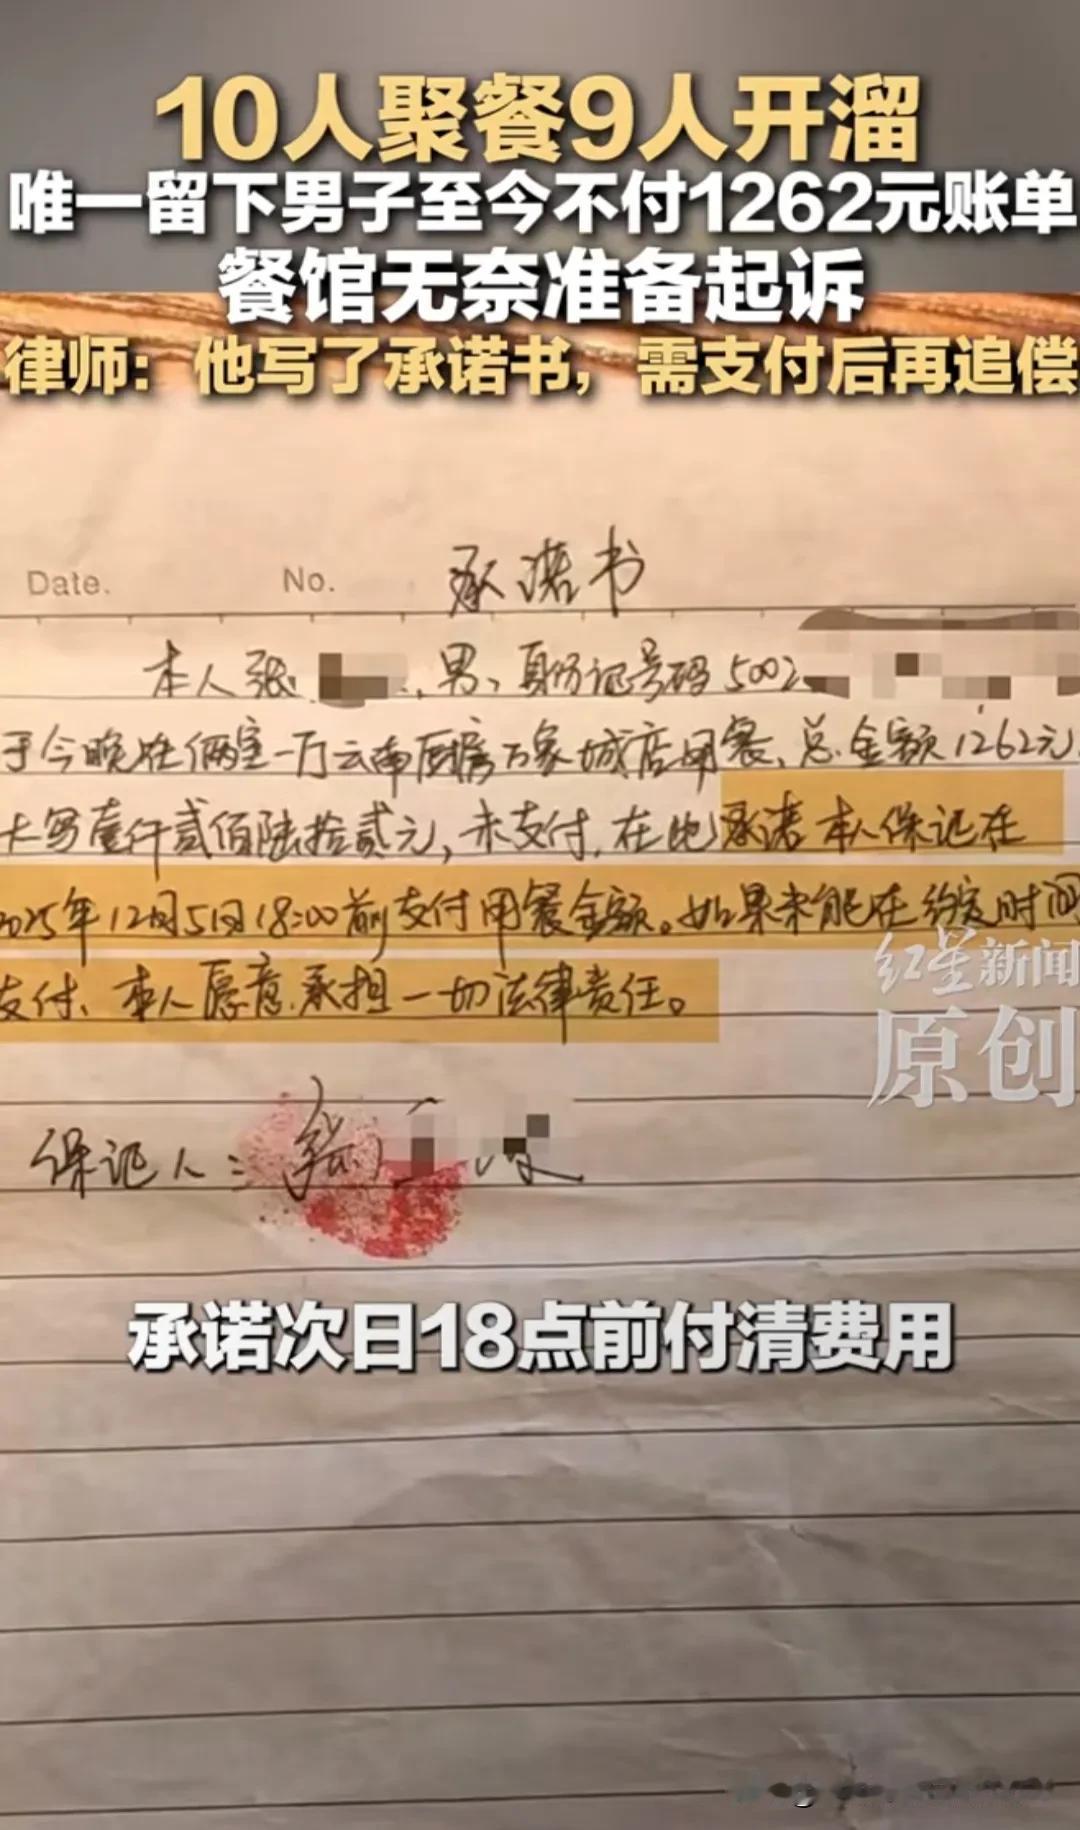 10人聚餐9人开溜
唯一留下男子至今不付1262元账单
餐馆无奈准备起诉
律师：他写了承诺书，需支付后再追偿
Date. No. 承诺书
本人张 ，男、身份证号码5002
于今晚在俩室一厅云南厨房万象城店用餐、总金额1262元
大写壹仟贰佰陆拾贰元，未支付，在此承诺本人保证在
2025年12月5日18:00前支付用餐金额。如果未能在约定时间
支付、本人愿意承担一切法律责任。
红星新闻
原创
保证人：张
承诺次日18点前付清费用